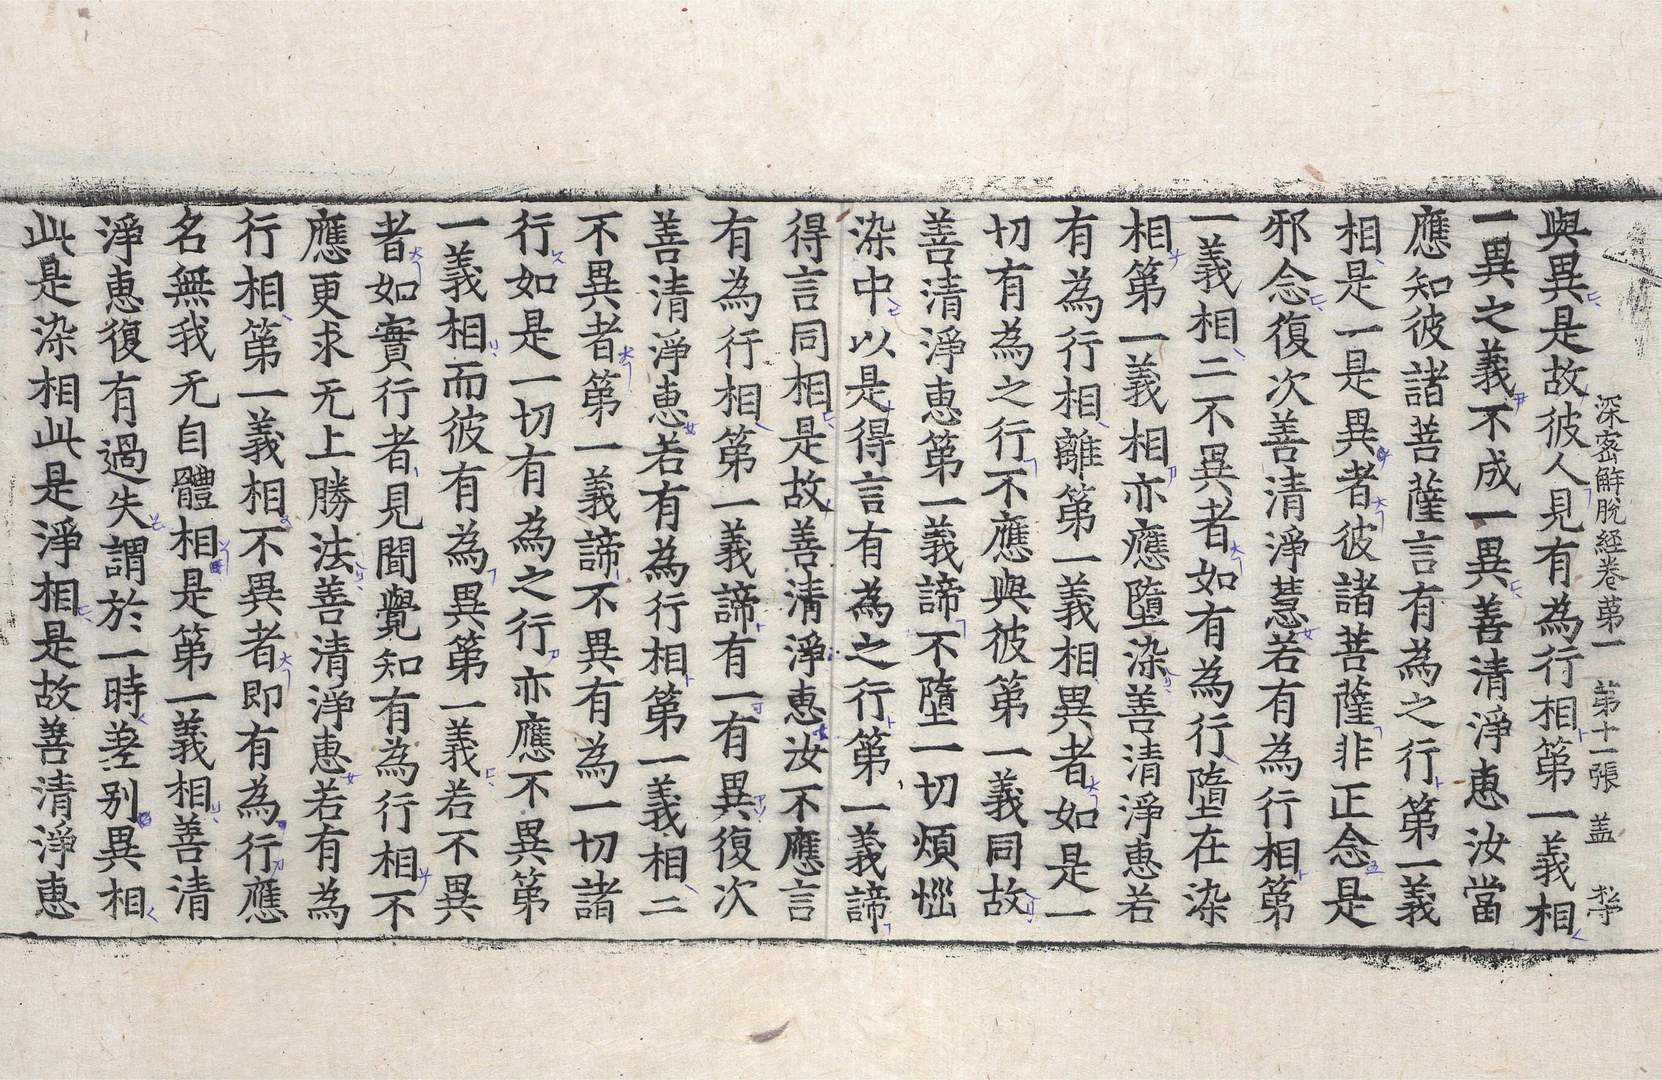 深密解脫經卷第一　第十一張　盖
與異是故彼人見有為行相第一義相
一異之義不成一異善清淨惠汝當
應知彼諸菩薩言有為之行第一義
相是一是異者彼諸菩薩非正念是
邪念復次善清淨慧若有為行相第
一義相二不異者如有為行墮在染
相第一義相亦應墮染善清淨惠若
有為行相離第一義相異者如是一
切有為之行不應與彼第一義同故
善清淨惠第一義諦不墮一切煩惱
染中以是得言有為之行第一義諦
得言同相是故善清淨惠汝不應言
有為行相第一義諦有一有異復次
善清淨惠若有為行相第一義相二
不異者第一義諦不異有為一切諸
行如是一切有為之行亦應不異第
一義相而彼有為異第一義若不異
者如實行者見聞覺知有為行相不
應更求无上勝法善清淨惠若有為
行相第一義相不異者即有為行應
名無我无自體相是第一義相善清
淨惠復有過失謂於一時差別異相
此是染相此是淨相是故善清淨惠